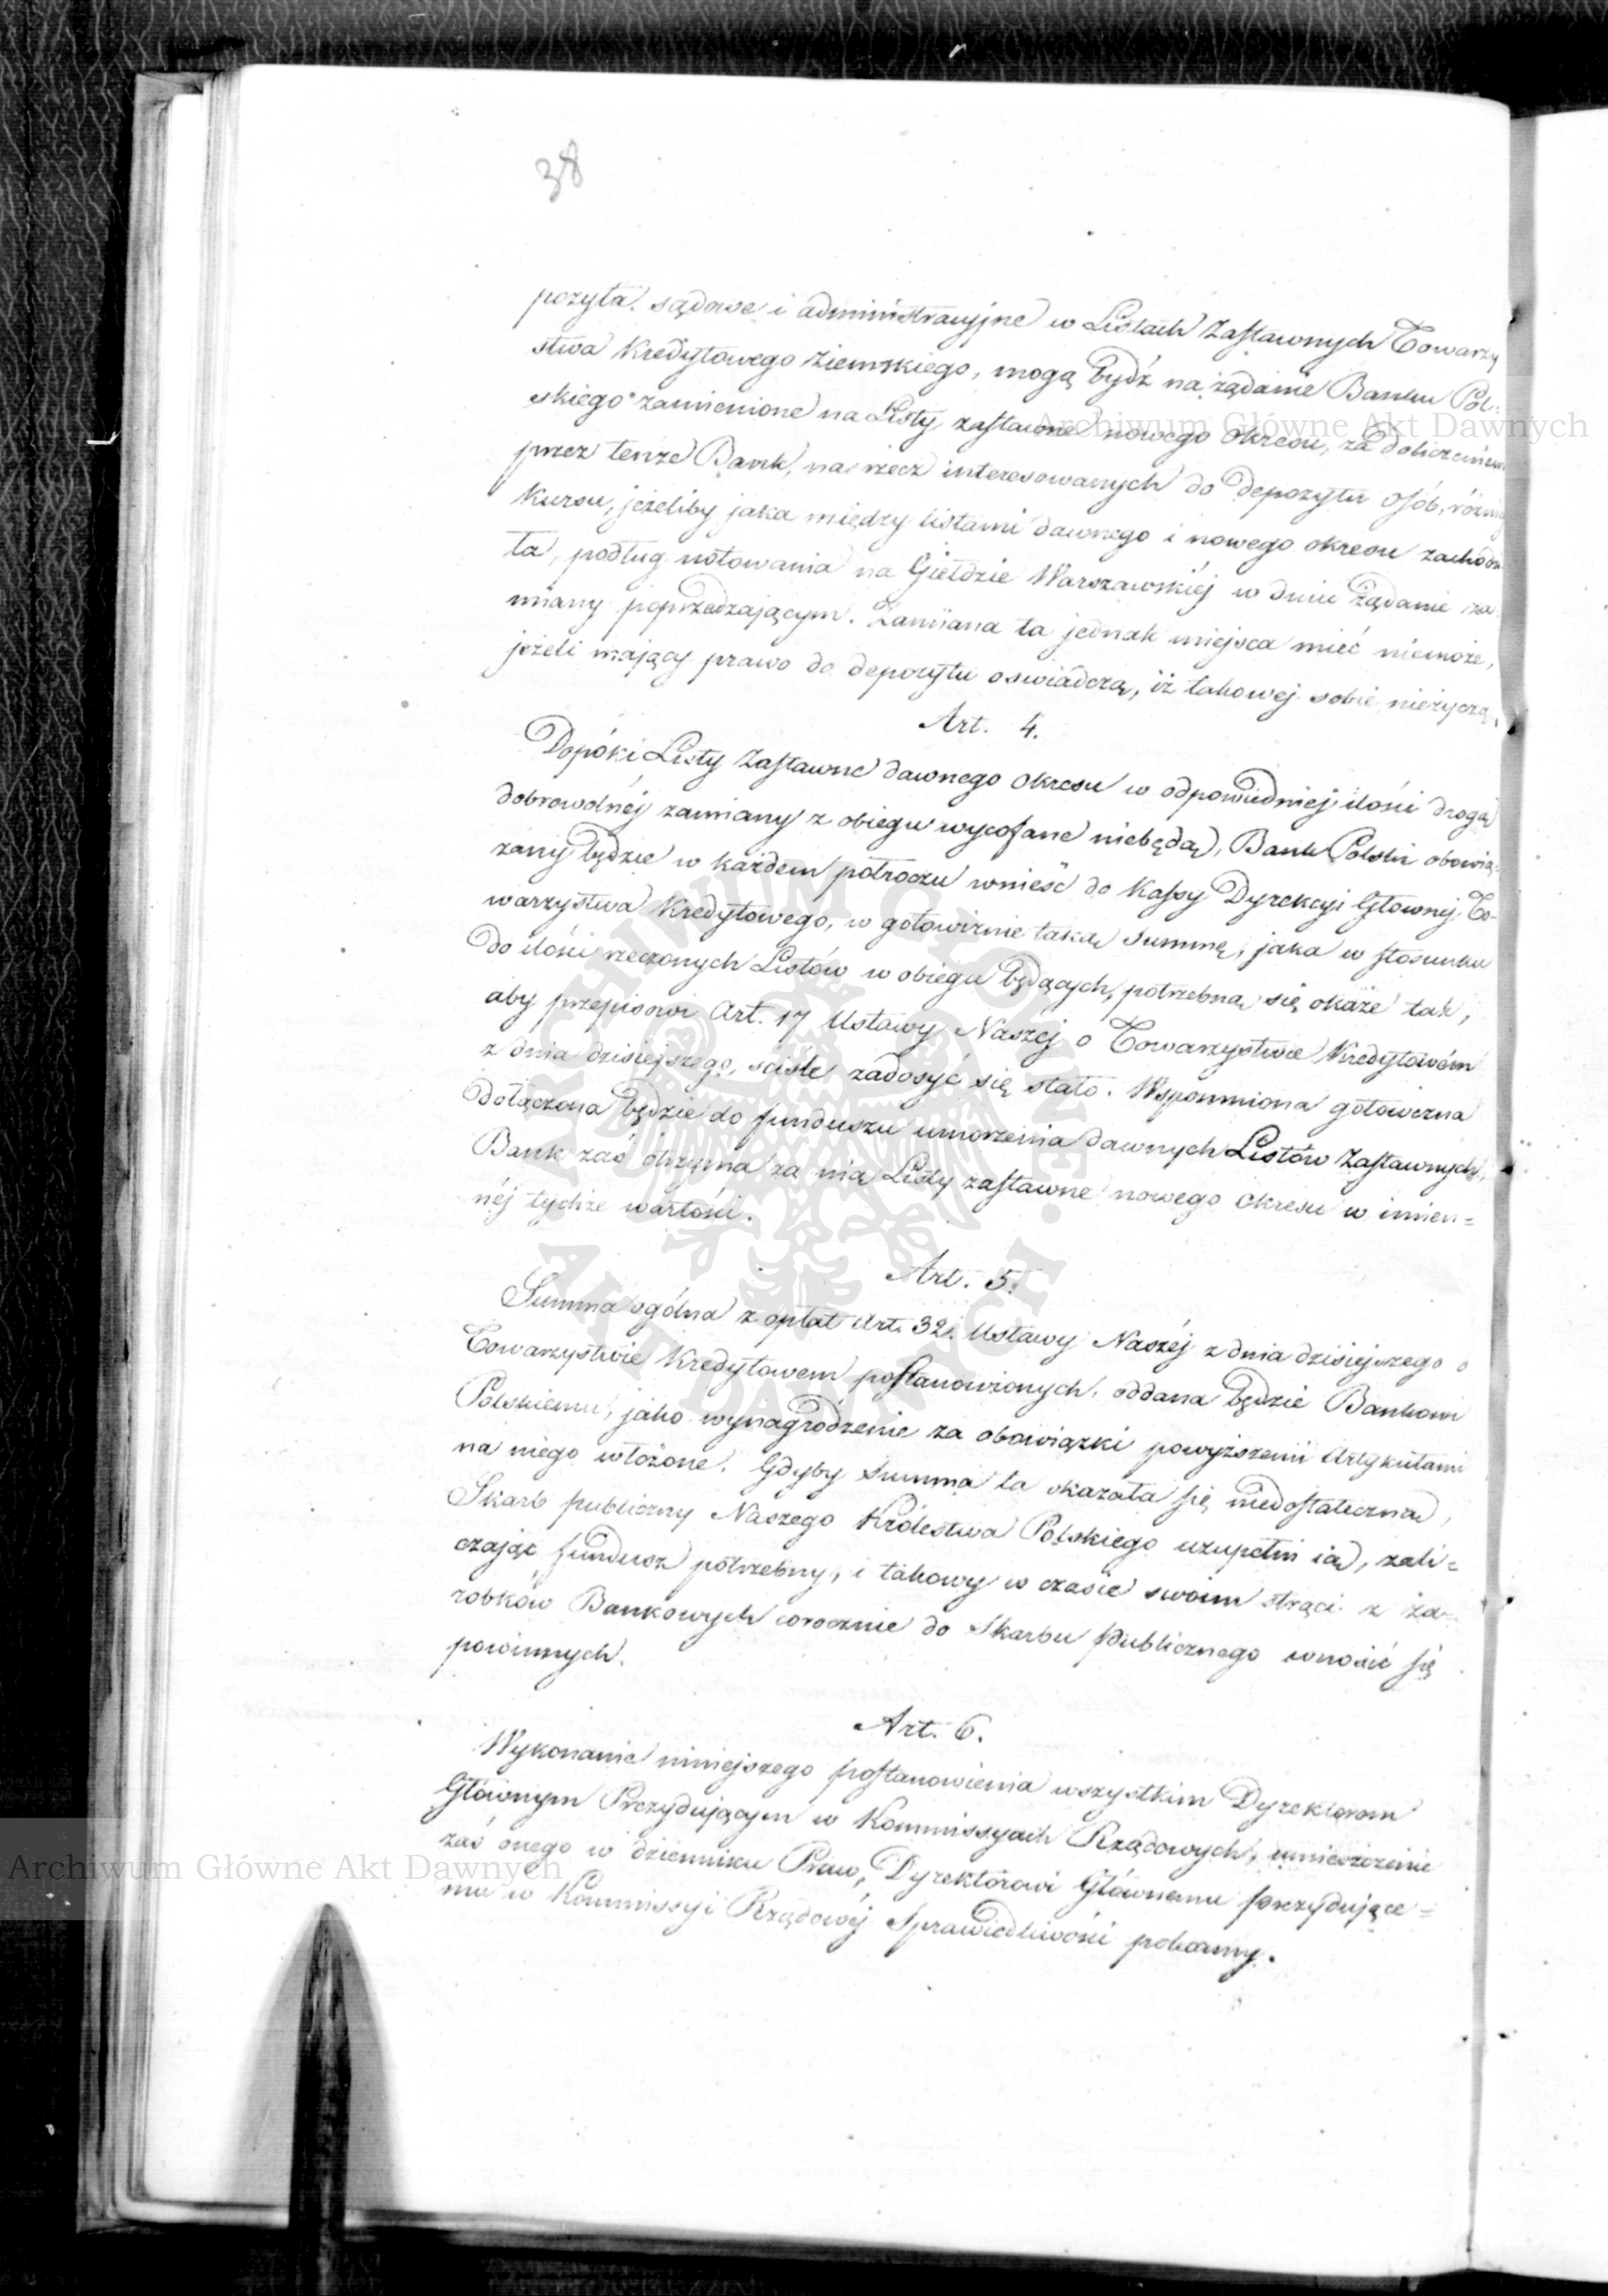 38
pozyta sądowe i administracyjne w Listach Zastawnych Towarzy
stwa Kredytowego Ziemskiego, mogą bydź na żądanie Banku Pol-
skiego zamienione na Listy zastawne nowego okresu, za doliczeniem
przez tenże Bank, na rzecz interesowanych do depozytu osób, różnicy
Kursu, jeżeliby jaka między listami dawnego i nowego okresu zachodzi
ła, podług notowania na Giełdzie Warszawskiéj w dniu żądanie za-
miany poprzedzającym. Zamiana ta jednak miejsca mieć niemoże,
jeżeli mający prawo do depozytu oswiadczą, iż takowej sobie nieżyczą.
Art. 4.
Dopóki Listy Zastawne dawnego okresu w odpowiedniej ilości drogą
dobrowolnéj zamiany z obiegu wycofane niebędą, Bank Polski obowią-
zany będzie w każdem półroczu wnieść do Kassy Dyrekcyi Głównej To-
warzystwa Kredytowego, w gotowiznie taką summę, jaka w stosunku
do ilości rzeczonych Listów w obiegu będących, potrzebną się okaże tak,
aby przepisowi Art. 17 Ustawy Naszej o Towarzystwie Kredytowém
z dnia dzisiejszego, sciśle zadosyć się stało. Wspomniona gotowizna
dołączona będzie do funduszu umorzenia dawnych Listów Zastawnych,
Bank zaś otrzyma za nią Listy zastawne nowego okresu w imien=
néj tychże wartości.
Art. 5.
Summa ogólna z opłat Art. 32. Ustawy Naszéj z dnia dzisiejszego o
Towarzystwie Kredytowem postanowionych, oddana będzie Bankowi
Polskiemu, jako wynagrodzenie za obowiązki powyższemi Artykułami
na niego włożone. Gdyby summa ta okazała się niedostateczną,
Skarb publiczny Naszego Królestwa Polskiego uzupełni ią, zali=
czając fundusz potrzebny, i takowy w czasie swoim strąci z za-
robków Bankowych corocznie do Skarbu Publicznego wnosić się
powinnych.
Art. 6.
Wykonanie niniejszego postanowienia wszystkim Dyrektorom
Głównym Prezydującym w Kommissyach Rządowych, umieszczenie
zaś onego w dzienniku Praw, Dyrektorowi Głównemu prezydujące=
mu w Kommissyi Rządowéj Sprawiedliwości polecamy.
Archiwum Główne Akt Dawnych
Archiwum Główne Akt Dawnych
ARCHIWUM GŁÓWNE
AKT DAWNYCH